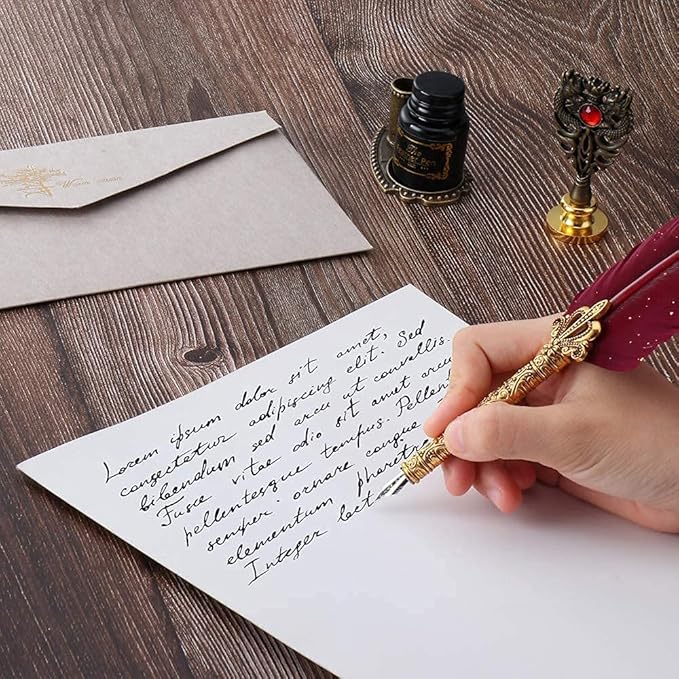 Lorem ipsum dolor sit amet,
consectetur adipiscing elit. Sed
bibendum sed arcu ut convallis.
Fusce vitae odio sit amet arcu
pellentesque tempus. Pellent
semper ornare congue
elementum pharetr
Integer lect
The
Pen